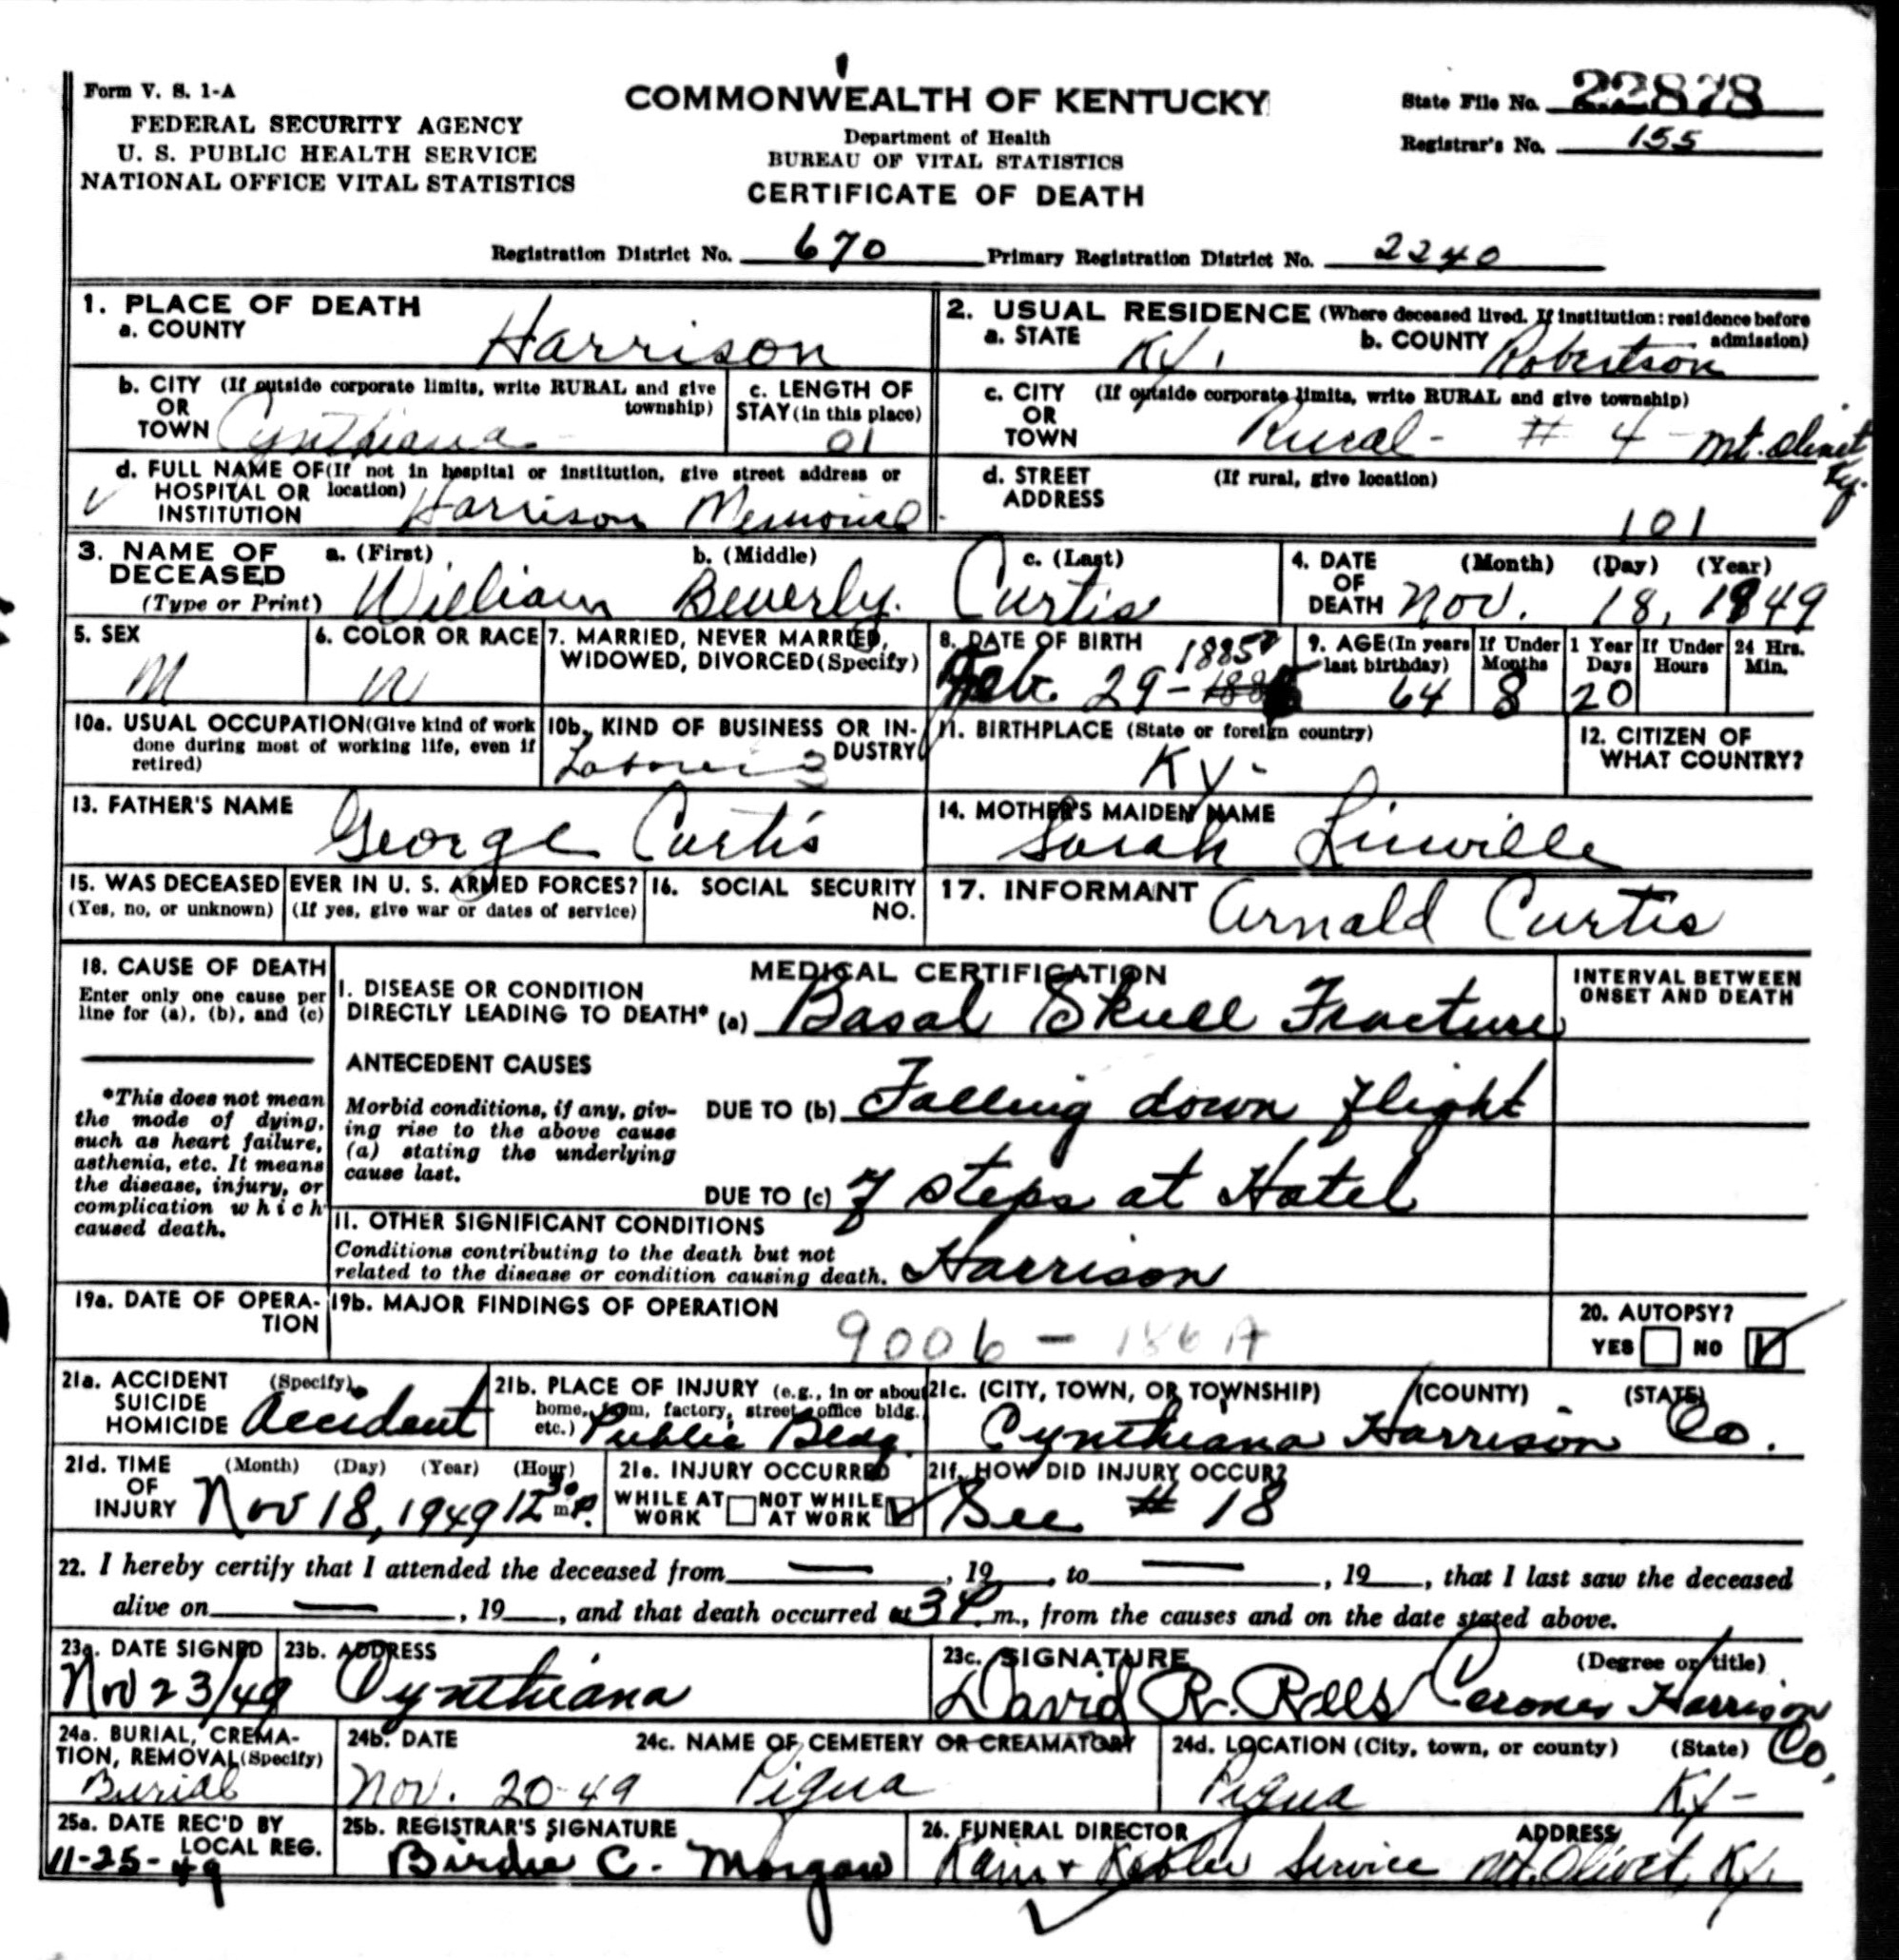 Form V. S. 1-A
FEDERAL SECURITY AGENCY
U. S. PUBLIC HEALTH SERVICE
NATIONAL OFFICE VITAL STATISTICS
COMMONWEALTH OF KENTUCKY
Department of Health
BUREAU OF VITAL STATISTICS
CERTIFICATE OF DEATH
State File No. 22878
Registrar's No. 155
Registration District No. 670 Primary Registration District No. 2240
1. PLACE OF DEATH
a. COUNTY Harrison
b. CITY (If outside corporate limits, write RURAL and give township)
OR
TOWN Cynthiana
c. LENGTH OF
STAY (in this place)
01
d. FULL NAME OF (If not in hospital or institution, give street address or location)
HOSPITAL OR
INSTITUTION Harrison Memorial
2. USUAL RESIDENCE (Where deceased lived. If institution: residence before admission)
a. STATE Ky. b. COUNTY Robertson
c. CITY (If outside corporate limits, write RURAL and give township)
OR
TOWN Rural - # 4 - Mt. Olivet Ky.
d. STREET (If rural, give location)
ADDRESS
101
3. NAME OF
DECEASED
(Type or Print)
a. (First) William b. (Middle) Beverly. c. (Last) Curtis
4. DATE
OF
DEATH
(Month) (Day) (Year)
Nov. 18, 1949
5. SEX
M
6. COLOR OR RACE
W
7. MARRIED, NEVER MARRIED,
WIDOWED, DIVORCED (Specify)
8. DATE OF BIRTH
Feb. 29 - 1885
9. AGE (In years last birthday) 64
If Under 1 Year Months 8 Days 20
If Under 24 Hrs. Hours Min.
10a. USUAL OCCUPATION (Give kind of work
done during most of working life, even if
retired)
10b. KIND OF BUSINESS OR INDUSTRY
Laborer
11. BIRTHPLACE (State or foreign country)
Ky.
12. CITIZEN OF
WHAT COUNTRY?
13. FATHER'S NAME
George Curtis
14. MOTHER'S MAIDEN NAME
Sarah Linville
15. WAS DECEASED EVER IN U. S. ARMED FORCES?
(Yes, no, or unknown) (If yes, give war or dates of service)
16. SOCIAL SECURITY
NO.
17. INFORMANT Arnald Curtis
18. CAUSE OF DEATH
Enter only one cause per
line for (a), (b), and (c)
*This does not mean
the mode of dying,
such as heart failure,
asthenia, etc. It means
the disease, injury, or
complication which
caused death.
MEDICAL CERTIFICATION
I. DISEASE OR CONDITION
DIRECTLY LEADING TO DEATH* (a) Basal Skull Fracture
INTERVAL BETWEEN
ONSET AND DEATH
ANTECEDENT CAUSES
Morbid conditions, if any, giv-
ing rise to the above cause
(a) stating the underlying
cause last.
DUE TO (b) Falling down flight
DUE TO (c) of steps at Hotel
II. OTHER SIGNIFICANT CONDITIONS
Conditions contributing to the death but not
related to the disease or condition causing death. Harrison
19a. DATE OF OPERA-
TION
19b. MAJOR FINDINGS OF OPERATION
9006 - 186A
20. AUTOPSY?
YES NO
21a. ACCIDENT (Specify)
SUICIDE
HOMICIDE Accident
21b. PLACE OF INJURY (e.g., in or about
home, farm, factory, street, office bldg.,
etc.) Public Bldg.
21c. (CITY, TOWN, OR TOWNSHIP) (COUNTY) (STATE)
Cynthiana Harrison Co.
21d. TIME (Month) (Day) (Year) (Hour)
OF
INJURY Nov 18, 1949 12 30 m P.
21e. INJURY OCCURRED
WHILE AT WORK NOT WHILE AT WORK
21f. HOW DID INJURY OCCUR?
See # 18
22. I hereby certify that I attended the deceased from , 19 , to , 19 , that I last saw the deceased
alive on , 19 , and that death occurred at 3 P. m., from the causes and on the date stated above.
23a. DATE SIGNED
Nov 23/49
23b. ADDRESS
Cynthiana
23c. SIGNATURE (Degree or title)
David R. Rees Coroner Harrison Co.
24a. BURIAL, CREMA-
TION, REMOVAL (Specify)
Burial
24b. DATE
Nov. 20-49
24c. NAME OF CEMETERY OR CREAMATORY
Piqua
24d. LOCATION (City, town, or county) (State)
Piqua Ky-
25a. DATE REC'D BY
LOCAL REG.
11-25-49
25b. REGISTRAR'S SIGNATURE
Birdie C. Morgan
26. FUNERAL DIRECTOR ADDRESS
Service Mt. Olivet, Ky.